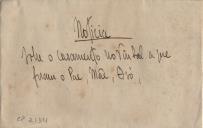 Noticia
Sobre o casamento no Natal a que
foram o Pae, Mãe, Avó,
CP 2134